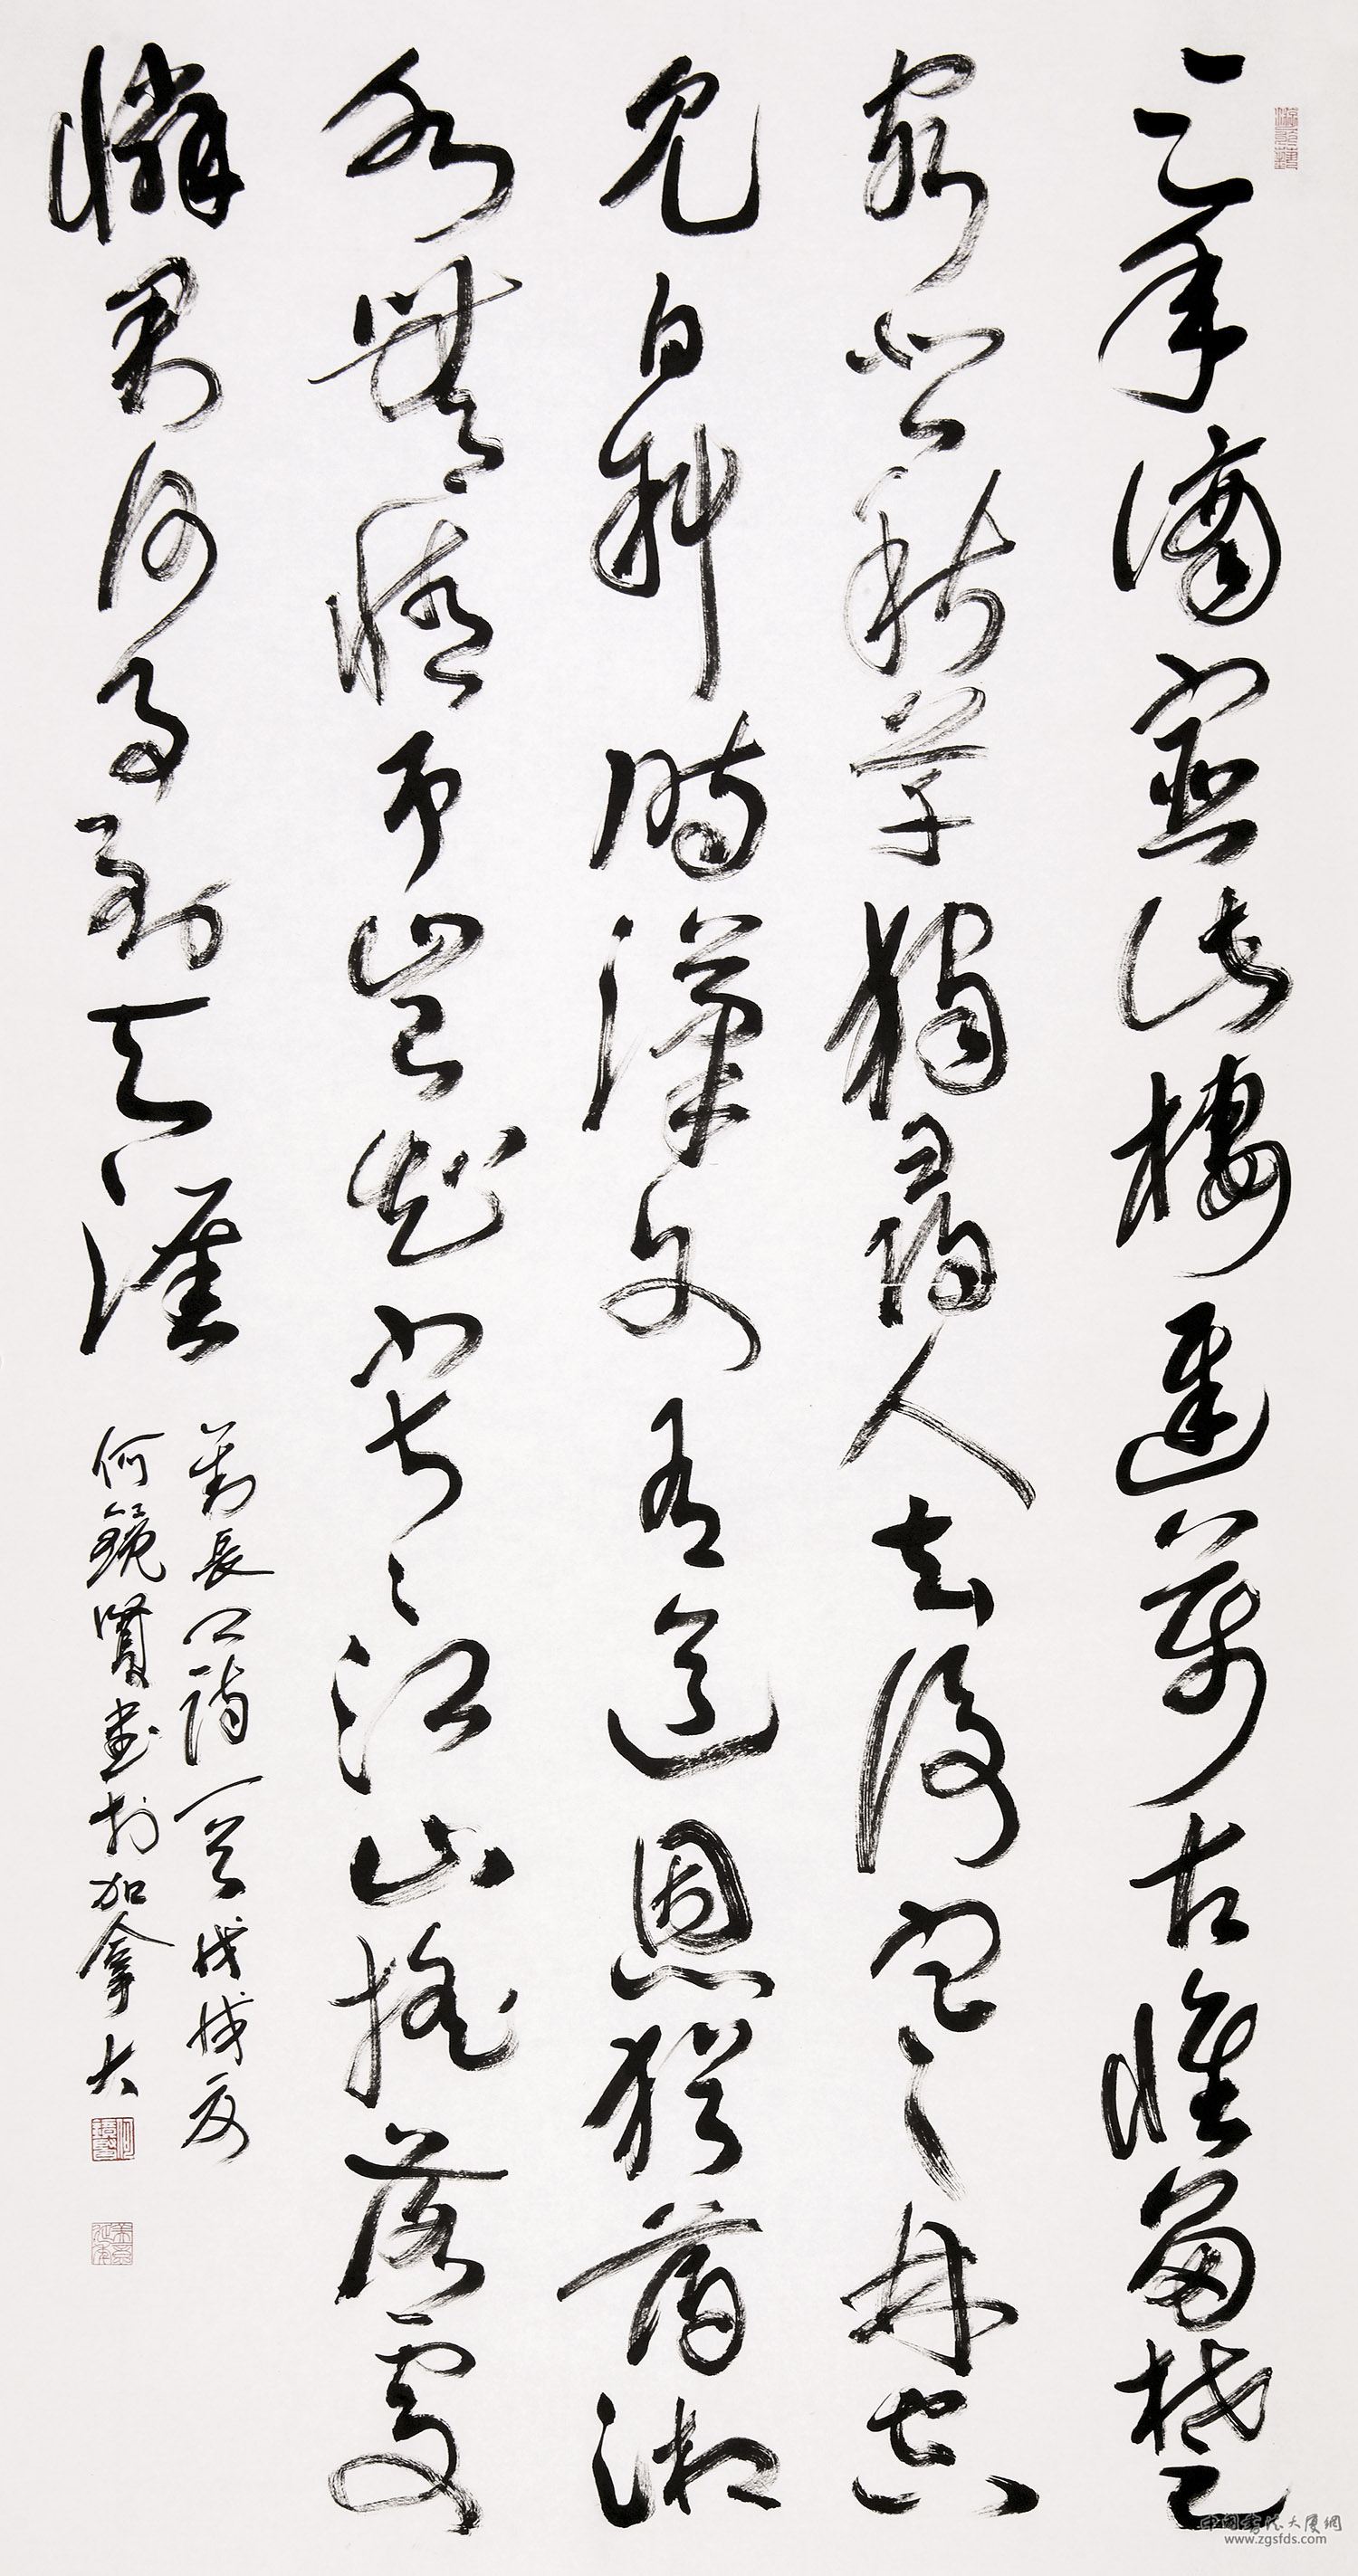 三年謫宦此棲遲萬古惟留楚
客悲秋草獨尋人去後寒林空
見日斜時漢文有道恩猶薄湘
水無情弔豈知寂々江山搖落處
憐君何事到天涯
劉長卿詩一首戊戌夏
何鏡賢書於加拿大
中國書法大厦網
www.zgsfds.com